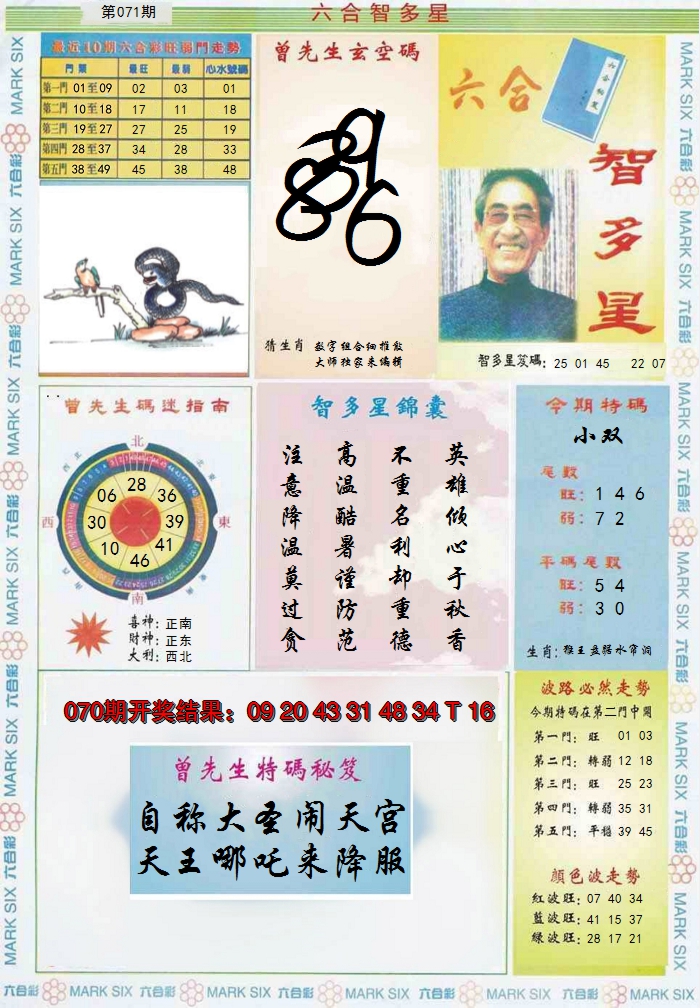 第071期
六合智多星
最近10期六合彩旺弱門走勢
門類 最旺 最弱 心水號碼
第一門 01至09 02 03 01
第二門 10至18 17 11 18
第三門 19至27 27 25 19
第四門 28至37 34 28 33
第五門 38至49 45 38 48
曾先生玄空碼
9
3
8
6
猜生肖
數字組合細推敲
大師獨家來編輯
六合
智多星
智多星笈碼: 25 01 45 22 07
曾先生碼迷指南
北
西
東
南
28
06 36
30 39
10 41
46
喜神: 正南
財神: 正东
大利: 西北
智多星錦囊
英雄倾心于秋香
不重名利却重德
高温酷暑谨防范
注意降温莫过贪
今期特碼
小双
尾數
旺: 1 4 6
弱: 7 2
平碼尾數
旺: 5 4
弱: 3 0
生肖: 猴王盘踞水帘洞
070期开奖结果: 09 20 43 31 48 34 T 16
曾先生特碼秘笈
自称大圣闹天宫
天王哪吒来降服
波路必然走勢
今期特碼在第二門中開
第一門: 旺 01 03
第二門: 轉弱 12 18
第三門: 旺 25 23
第四門: 轉弱 35 31
第五門: 平穩 39 45
顏色波走勢
紅波旺: 07 40 34
藍波旺: 41 15 37
綠波旺: 28 17 21
六合彩 MARK SIX 六合彩 MARK SIX 六合彩 MARK SIX 六合彩 MARK SIX 六合彩